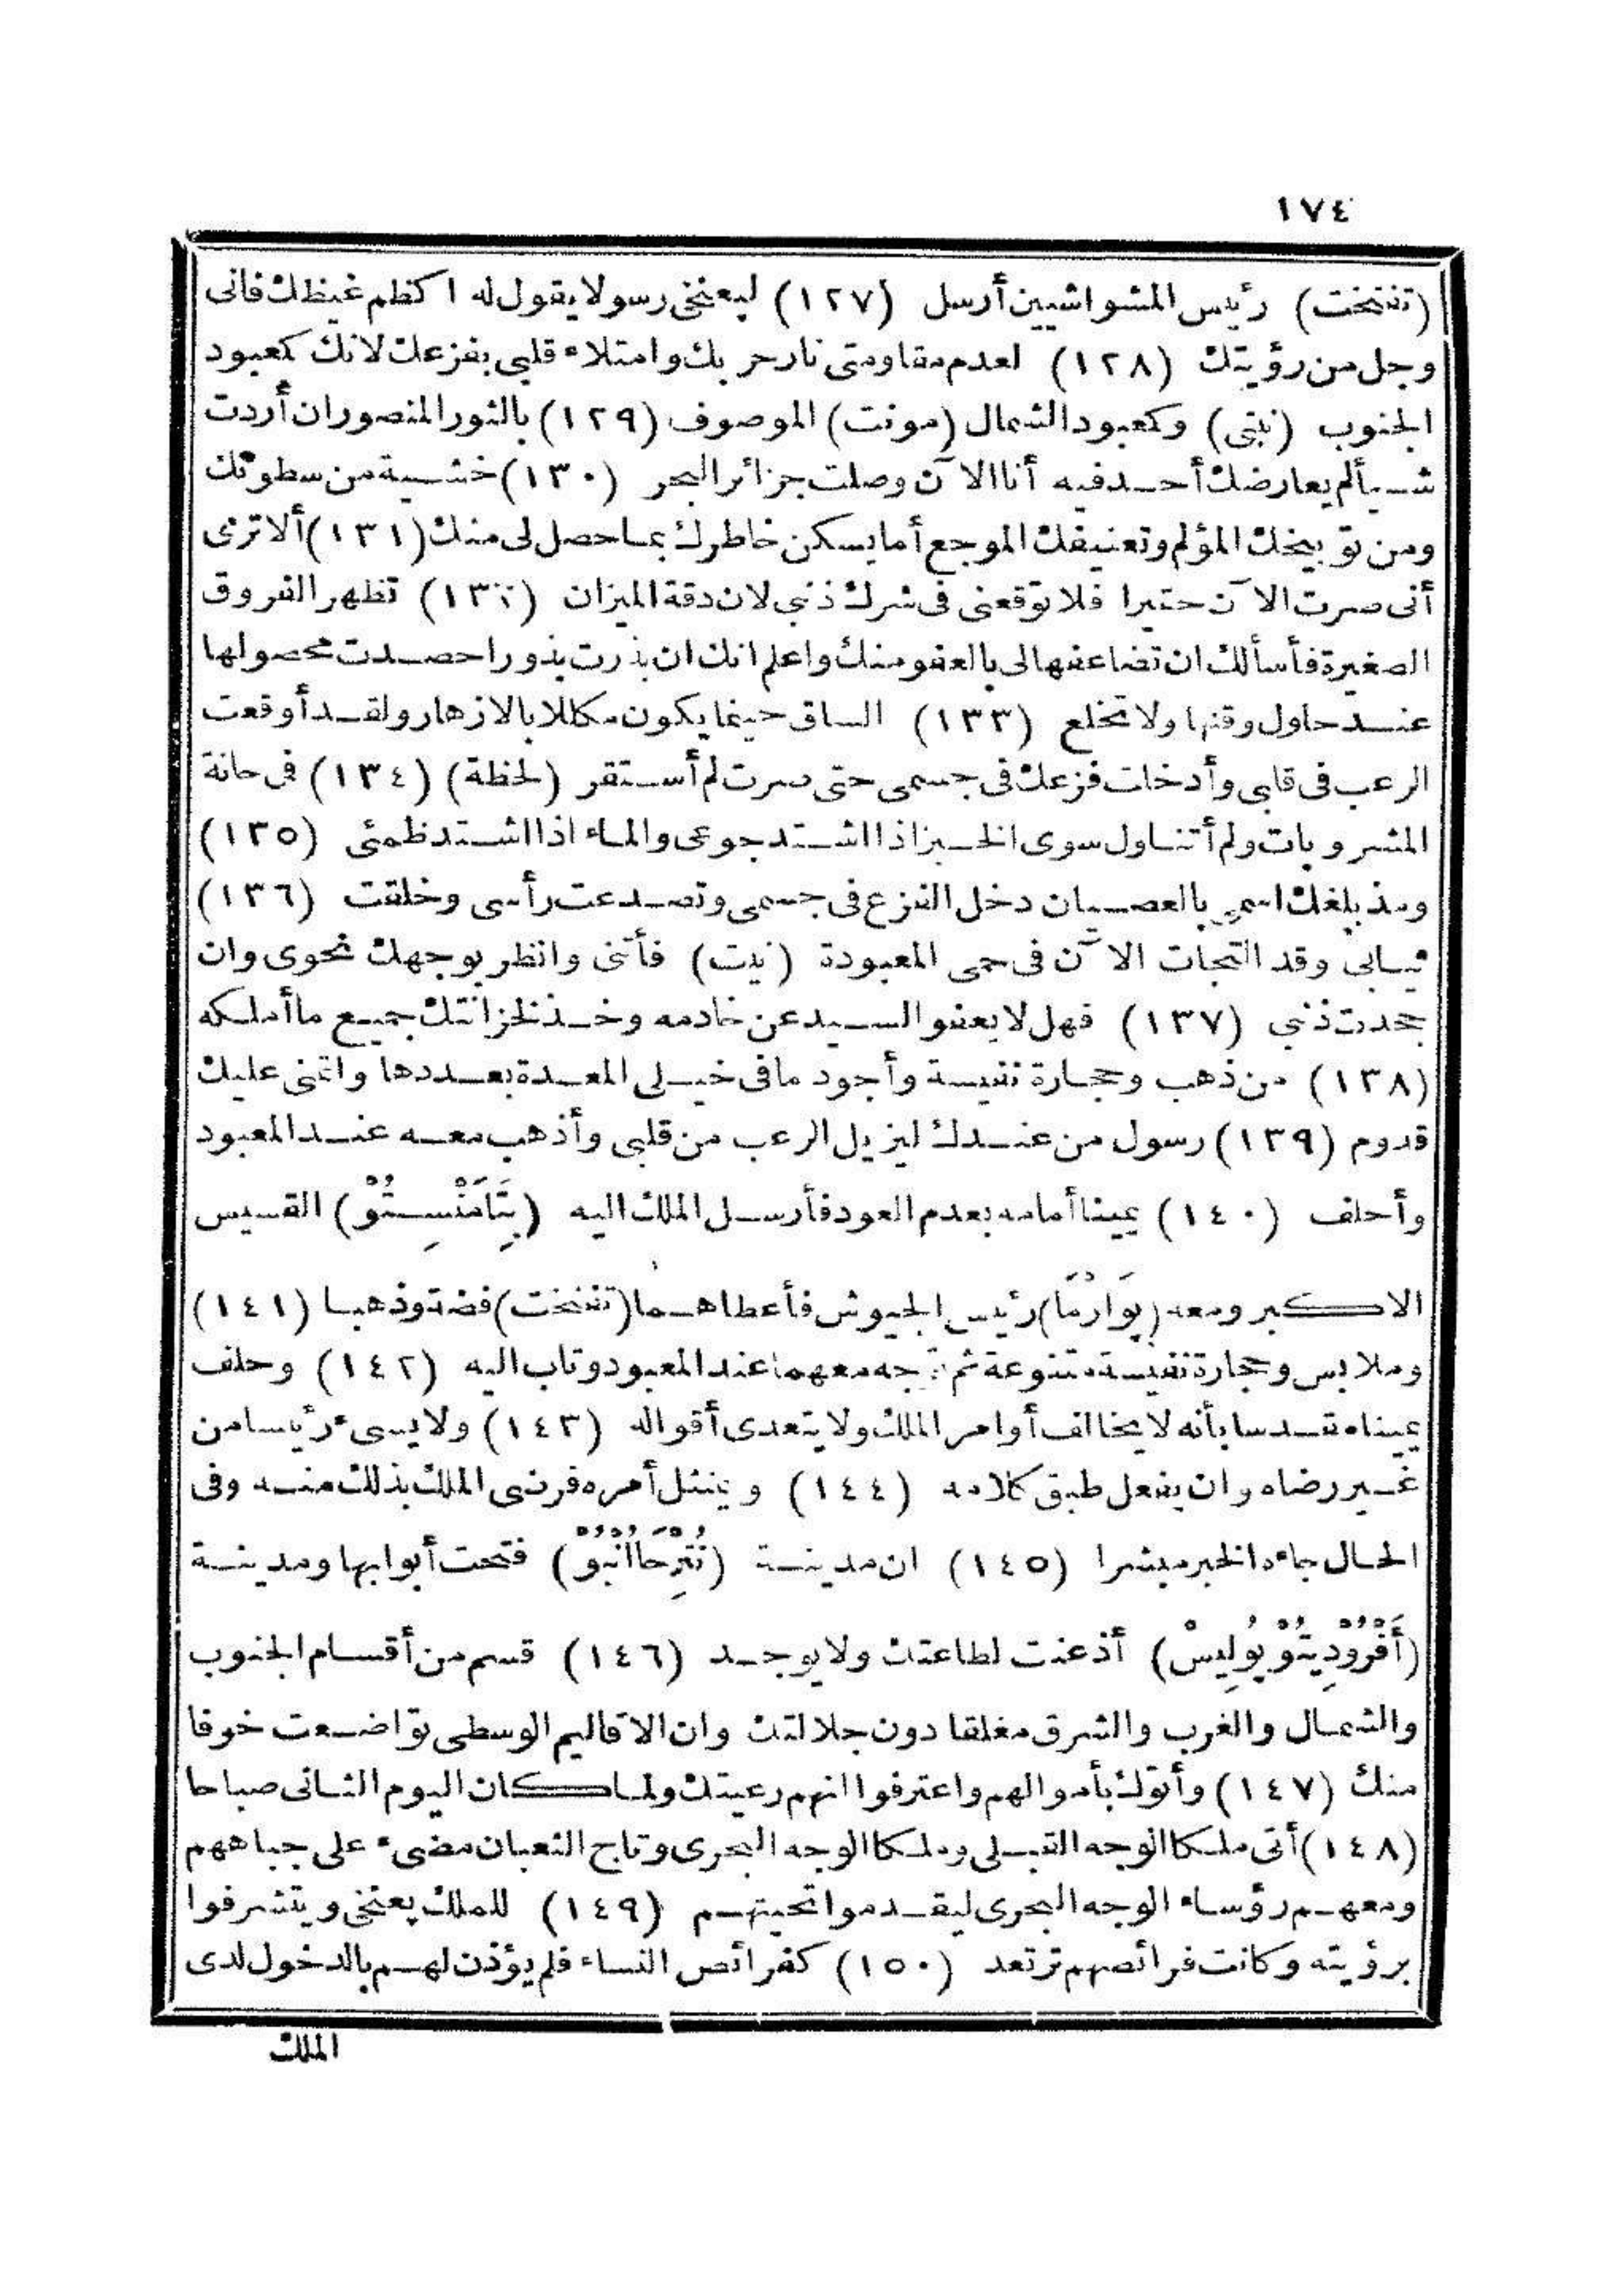 ١٧٤
(تفنخت) رئيس المشواشيين أرسل (١٢٧) ليعنخى رسولا يقول له اكظم غيظك فانى
وجل من رؤيتك (١٢٨) لعدم مقاومتى نار حربك وامتلاء قلبى بفزعك لانك كعبود
الجنوب (نبتى) وكعبود الشمال (مونت) الموصوف (١٢٩) بالثور المنصور ان أردت
شيألم يعارضك أحد فيه أنا الآن وصلت جزائر البحر (١٣٠) خشية من سطوتك
ومن توبيخك المؤلم وتعنيفك الموجع أما يسكن خاطرك بما حصل لى منك (١٣١) ألا ترى
أنى صرت الآن حقيرا فلا توقعنى فى شرك ذنبى لان دقة الميزان (١٣٢) تظهر الفروق
الصغيرة فأسألك ان تضاعفها لى بالعفو منك واعلم انك ان بذرت بذورا حصدت محصولها
عند حلول وقتها ولا تخلع (١٣٣) الساق حينما يكون مكللا بالازهار ولقد أوقعت
الرعب فى قلبى وأدخلت فزعك فى جسمى حتى صرت لم أستقر (لحظة) (١٣٤) فى حانة
المشروبات ولم أتناول سوى الخبز اذا اشتد جوعى والماء اذا اشتد ظمئى (١٣٥)
ومذ بلغك اسمى بالعصيان دخل الفزع فى جسمى وتصدعت رأسى وخلقت (١٣٦)
ثيابى وقد التجأت الآن فى حمى المعبودة (نيت) فأتنى وانظر بوجهك نحوى وان
جحدت ذنبى (١٣٧) فهل لا يعفو السيد عن خادمه وخذ لخزانتك جميع ما أملكه
(١٣٨) من ذهب وحجارة نفيسة وأجود ما فى خيلى المعدة بعددها واتمنى عليك
قدوم (١٣٩) رسول من عندك ليزيل الرعب من قلبى وأذهب معه عند المعبود
وأحلف (١٤٠) يمينا أمامه بعدم العود فأرسل الملك اليه (بِتَامَنْسِتُوْ) القسيس
الاكبر ومعه (بِوَارْمَا) رئيس الجيوش فأعطاهما (تفنخت) فضة وذهبا (١٤١)
وملابس وحجارة نفيسة متنوعة ثم توجه معهما عند المعبود وتاب اليه (١٤٢) وحلف
يمينا مقدسا بأنه لا يخالف أوامر الملك ولا يتعدى أقواله (١٤٣) ولا يسىء رئيسا من
غير رضاه وان يفعل طبق كلامه (١٤٤) ويمتثل أمره فرضى الملك بذلك منه وفى
الحال جاءه الخبر مبشرا (١٤٥) ان مدينة (نُتِرْحَاانْبُوْ) فتحت أبوابها ومدينة
(أَفْرُوْدِيتُوْبُولِيسْ) أذعنت لطاعتك ولا يوجد (١٤٦) قسم من أقسام الجنوب
والشمال والغرب والشرق مغلقا دون جلالتك وان الاقاليم الوسطى تواضعت خوفا
منك (١٤٧) وأتوك بأموالهم واعترفوا انهم رعيتك ولما كان اليوم الثانى صباحا
(١٤٨) أتى ملكا الوجه القبلى وملكا الوجه البحرى وتاج الثعبان مضىء على جباههم
ومعهم رؤساء الوجه البحرى ليقدموا تحيتهم (١٤٩) للملك يعنخى ويتشرفوا
برؤيته وكانت فرائصهم ترتعد (١٥٠) كفرائص النساء فلم يؤذن لهم بالدخول لدى
الملك